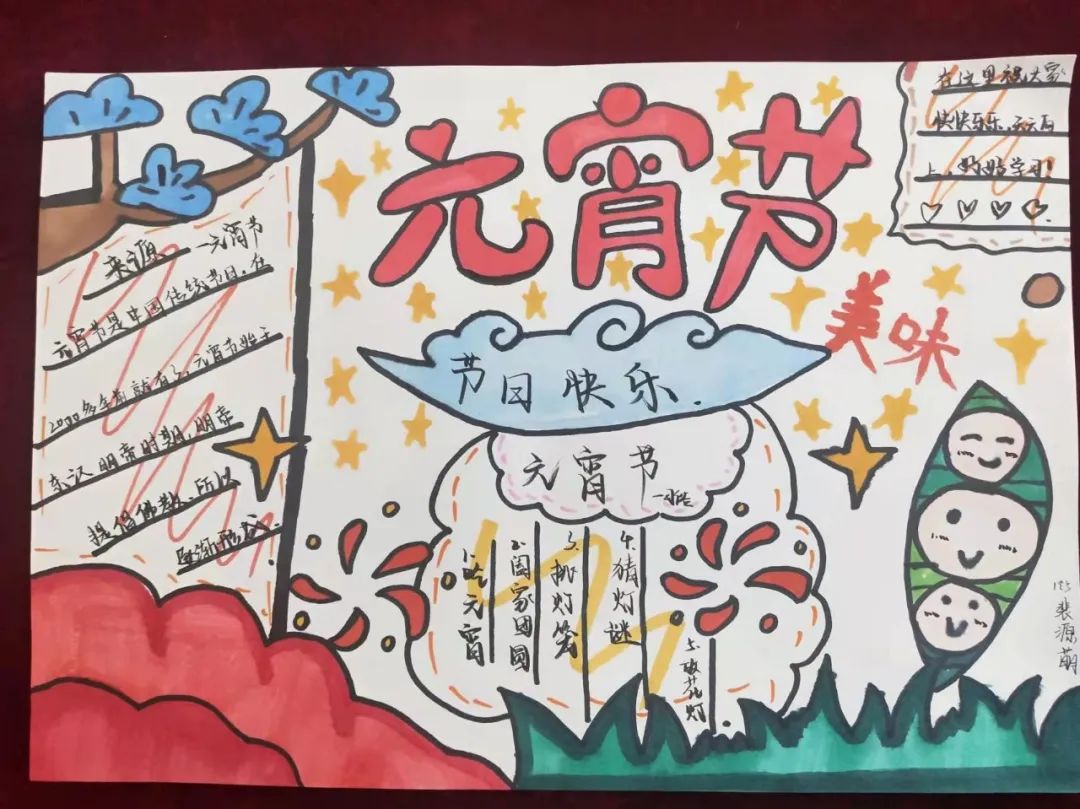 元宵节
美味
节日快乐.
来源 一元宵节
元宵节是中国传统节日.在
2000多年前就有了,元宵节始于
东汉明帝时期,明帝
提倡佛教.所以
逐渐形成.
元宵节
1.吃元宵
2.阖家团圆
3.挑灯笼
4.猜灯谜
5.放花灯
在这里祝大家
快快乐乐,天天向
上,好好学习!
裴源萌